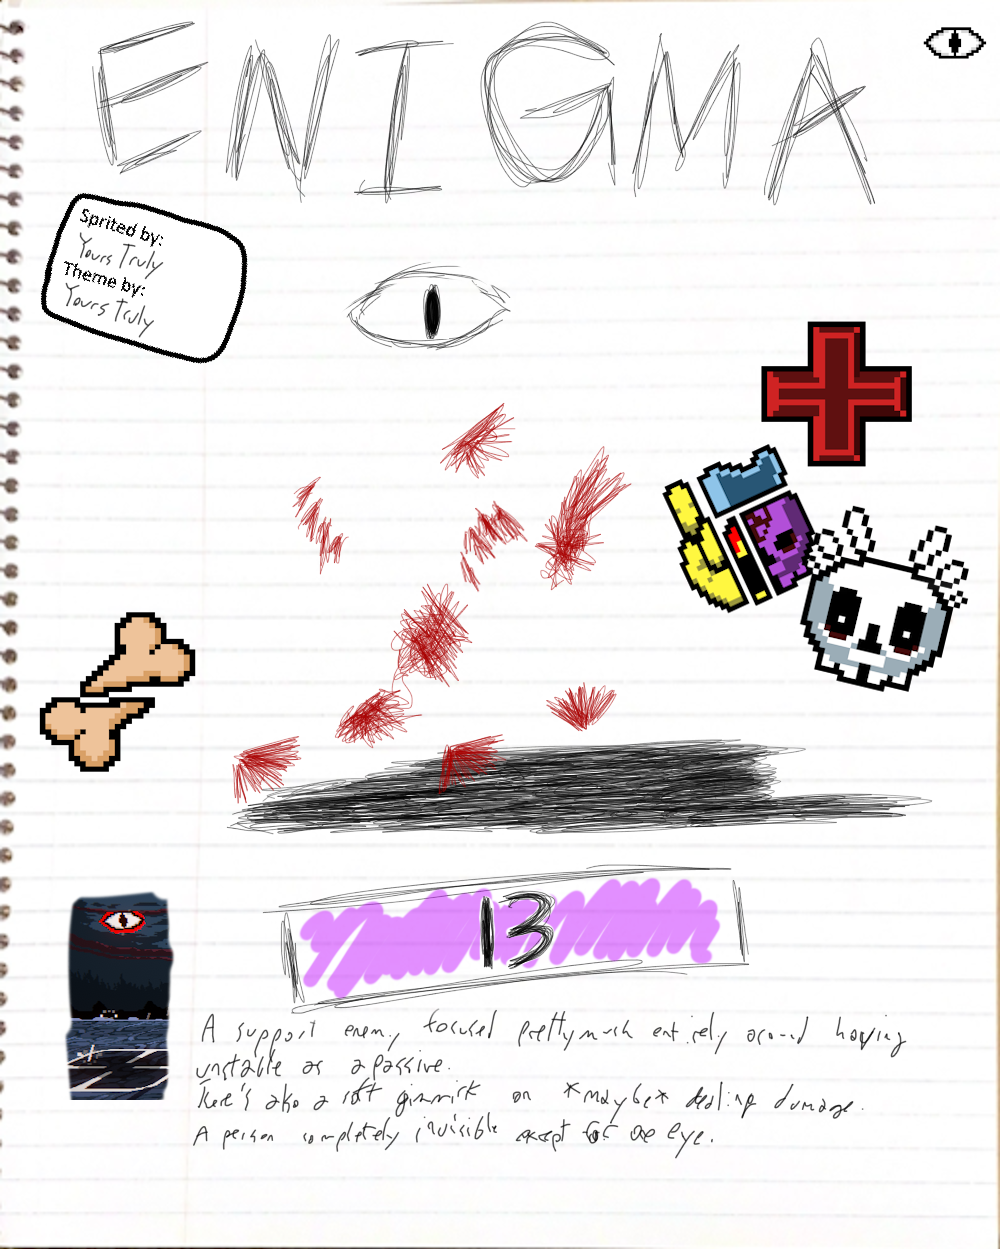 ENIGMA
Sprited by:
Yours Truly
Theme by:
Yours Truly
13
A support enemy focused prettymuch entirely around having
unstable as a passive.
There's also a soft gimmick on *maybe* dealing damage.
A person completely invisible except for one eye.